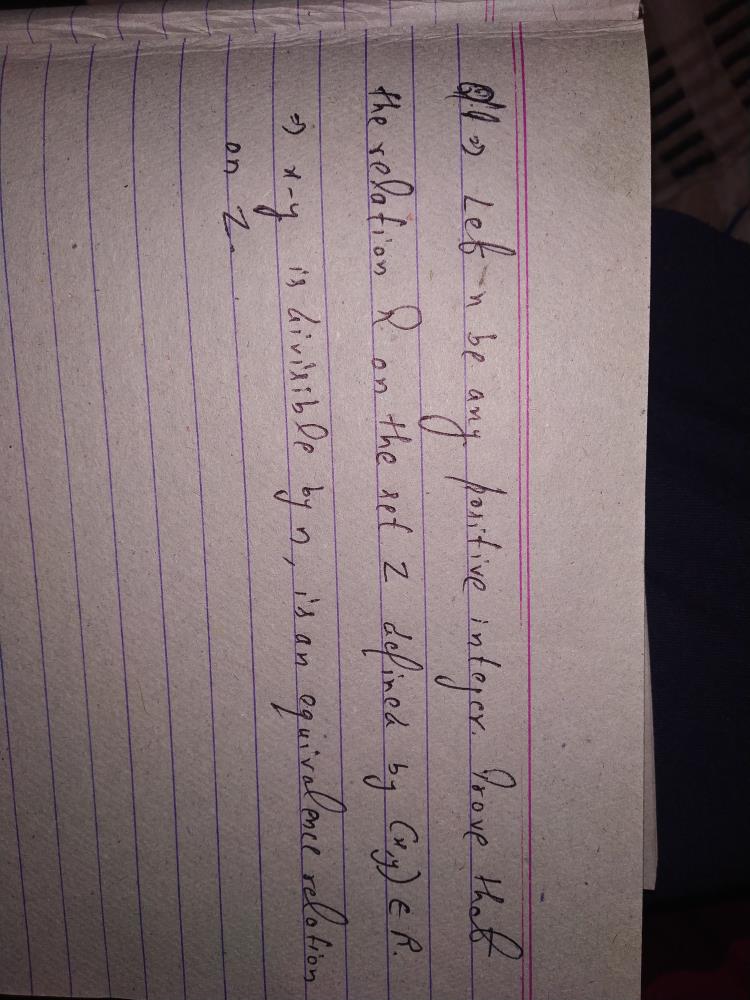 Q1 ⇒ Let n be any positive integer. Prove that
the relation R on the set Z defined by (x,y) ∈ R.
⇒ x-y is divisible by n, is an equivalence relation
on Z.